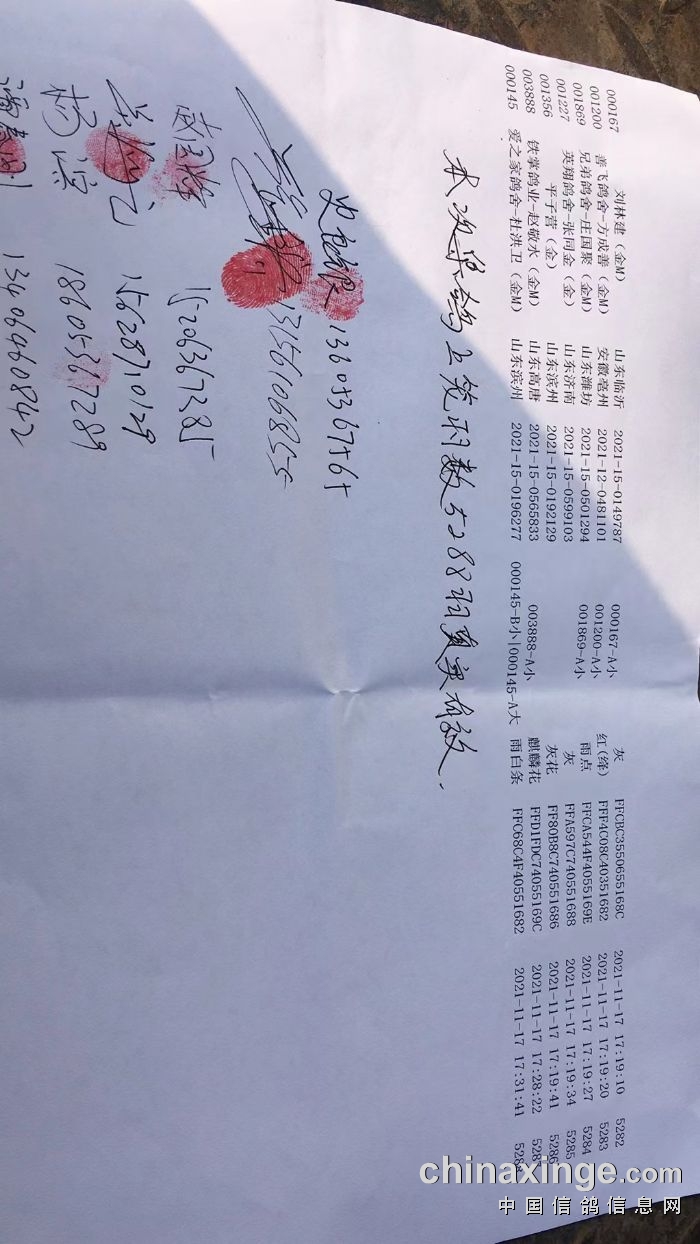 000167 刘林建 (金M) 山东临沂 2021-15-0149787 000167-A小 灰 FFCBC3550655168C 2021-11-17 17:19:10 5282
001200 善飞鸽舍-方成善 (金M) 安徽亳州 2021-12-0481101 001200-A小 红(绛) FFF4C08C40351682 2021-11-17 17:19:20 5283
001869 兄弟鸽舍-庄国聚 (金M) 山东潍坊 2021-15-0501294 001869-A小 雨点 FFCA544F4055169E 2021-11-17 17:19:27 5284
001227 英翔鸽舍-张同金 (金) 山东济南 2021-15-0599103 灰 FFA597C740551688 2021-11-17 17:19:34 5285
001356 平子营 (金) 山东滨州 2021-15-0192129 灰花 FF80B8C740551686 2021-11-17 17:19:41 5286
003888 铁掌鸽业-赵敬水 (金M) 山东高唐 2021-15-0565833 003888-A小 麒麟花 FFD1FDC74055169C 2021-11-17 17:28:22 528
000145 爱之家鸽舍-杜洪卫 (金M) 山东滨州 2021-15-0196277 000145-B小|000145-A大 雨白条 FFC68C4F40551682 2021-11-17 17:31:41 528
本次集鸽上笼羽数5288羽真实有效.
13605367565
13156106855
15206367385
15628710129
杨滨 18605367289
13406460842
chinaxinge.com
中国信鸽信息网